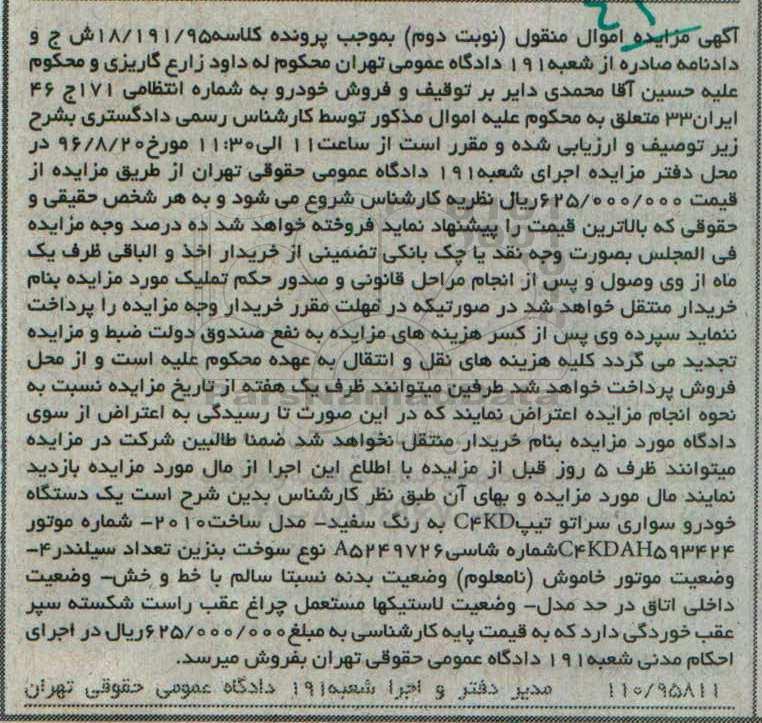 آگهی مزایده اموال منقول (نوبت دوم) بموجب پرونده کلاسه۱۸/۱۹۱/۹۵ش ج و
دادنامه صادره از شعبه۱۹۱ دادگاه عمومی تهران محکوم له داود زارع گاریزی و محکوم
علیه حسین آقا محمدی دایر بر توقیف و فروش خودرو به شماره انتظامی ۱۷۱ج ۴۶
ایران۳۳ متعلق به محکوم علیه اموال مذکور توسط کارشناس رسمی دادگستری بشرح
زیر توصیف و ارزیابی شده و مقرر است از ساعت۱۱ الی۱۱:۳۰ مورخ۹۶/۸/۲۰ در
محل دفتر مزایده اجرای شعبه۱۹۱ دادگاه عمومی حقوقی تهران از طریق مزایده از
قیمت ۶۲۵/۰۰۰/۰۰۰ریال نظریه کارشناس شروع می شود و به هر شخص حقیقی و
حقوقی که بالاترین قیمت را پیشنهاد نماید فروخته خواهد شد ده درصد وجه مزایده
فی المجلس بصورت وجه نقد یا چک بانکی تضمینی از خریدار اخذ و الباقی ظرف یک
ماه از وی وصول و پس از انجام مراحل قانونی و صدور حکم تملیک مورد مزایده بنام
خریدار منتقل خواهد شد در صورتیکه در مهلت مقرر خریدار وجه مزایده را پرداخت
ننماید سپرده وی پس از کسر هزینه های مزایده به نفع صندوق دولت ضبط و مزایده
تجدید می گردد کلیه هزینه های نقل و انتقال به عهده محکوم علیه است و از محل
فروش پرداخت خواهد شد طرفین میتوانند ظرف یک هفته از تاریخ مزایده نسبت به
نحوه انجام مزایده اعتراض نمایند که در این صورت تا رسیدگی به اعتراض از سوی
دادگاه مورد مزایده بنام خریدار منتقل نخواهد شد ضمنا طالبین شرکت در مزایده
میتوانند ظرف ۵ روز قبل از مزایده با اطلاع این اجرا از مال مورد مزایده بازدید
نمایند مال مورد مزایده و بهای آن طبق نظر کارشناس بدین شرح است یک دستگاه
خودرو سواری سراتو تیپC۴KD به رنگ سفید- مدل ساخت۲۰۱۰- شماره موتور
C۴KDAH۵۹۳۴۲۴شماره شاسی۸۵۲۴۹۷۲۶ نوع سوخت بنزین تعداد سیلندر۴-
وضعیت موتور خاموش (نامعلوم) وضعیت بدنه نسبتا سالم با خط و خش- وضعیت
داخلی اتاق در حد مدل- وضعیت لاستیکها مستعمل چراغ عقب راست شکسته سپر
عقب خوردگی دارد که به قیمت پایه کارشناسی به مبلغ۶۲۵/۰۰۰/۰۰۰ریال در اجرای
احکام مدنی شعبه۱۹۱ دادگاه عمومی حقوقی تهران بفروش میرسد.
۱۱۰/۹۵۸۱۱ مدیر دفتر و اجرا شعبه۱۹۱ دادگاه عمومی حقوقی تهران
ParsNamadData